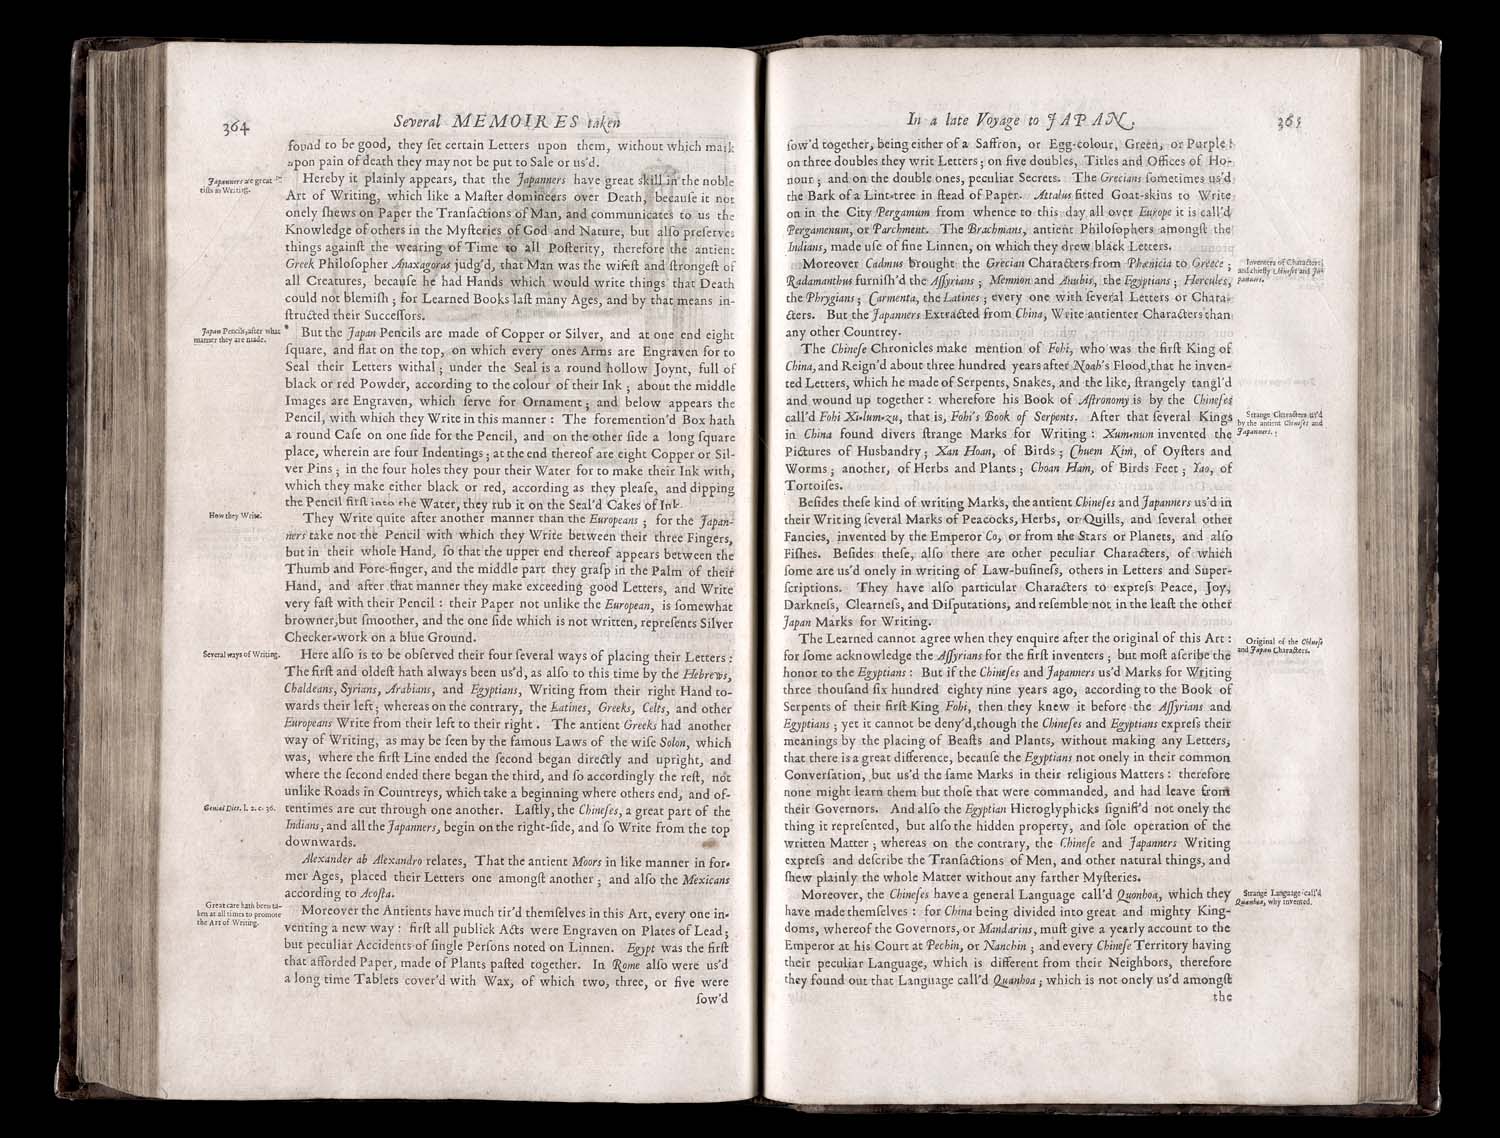 364
Several MEMOIRES taken
found to be good, they ſet certain Letters upon them, without which mark
upon pain of death they may not be put to Sale or us'd.
Japanners are great
tiſts in Writing.
Hereby it plainly appears, that the Japanners have great skill in the noble
Art of Writing, which like a Maſter domineers over Death, becauſe it not
onely ſhews on Paper the Tranſactions of Man, and communicates to us the
Knowledge of others in the Myſteries of God and Nature, but alſo preſerves
things againſt the wearing of Time to all Poſterity, therefore the antient
Greek Philoſopher Anaxagoras judg'd, that Man was the wiſeſt and ſtrongeſt of
all Creatures, becauſe he had Hands which would write things that Death
could not blemiſh ; for Learned Books laſt many Ages, and by that means in-
ſtructed their Succeſſors.
Japan Pencils, after what
manner they are made.
But the Japan Pencils are made of Copper or Silver, and at one end eight
ſquare, and flat on the top, on which every ones Arms are Engraven for to
Seal their Letters withal ; under the Seal is a round hollow Joynt, full of
black or red Powder, according to the colour of their Ink ; about the middle
Images are Engraven, which ſerve for Ornament ; and below appears the
Pencil, with which they Write in this manner : The foremention'd Box hath
a round Caſe on one ſide for the Pencil, and on the other ſide a long ſquare
place, wherein are four Indentings ; at the end thereof are eight Copper or Sil-
ver Pins ; in the four holes they pour their Water for to make their Ink with,
which they make either black or red, according as they pleaſe, and dipping
the Pencil firſt into the Water, they rub it on the Seal'd Cakes of Ink.
How they Write.
They Write quite after another manner than the Europeans ; for the Japan-
ners take not the Pencil with which they Write between their three Fingers,
but in their whole Hand, ſo that the upper end thereof appears between the
Thumb and Fore-finger, and the middle part they graſp in the Palm of their
Hand, and after that manner they make exceeding good Letters, and Write
very faſt with their Pencil : their Paper not unlike the European, is ſomewhat
browner, but ſmoother, and the one ſide which is not written, repreſents Silver
Checker-work on a blue Ground.
Several ways of Writing.
Here alſo is to be obſerved their four ſeveral ways of placing their Letters :
The firſt and oldeſt hath always been us'd, as alſo to this time by the Hebrews,
Chaldeans, Syrians, Arabians, and Egyptians, Writing from their right Hand to-
wards their left ; whereas on the contrary, the Latines, Greeks, Celts, and other
Europeans Write from their left to their right . The antient Greeks had another
way of Writing, as may be ſeen by the famous Laws of the wiſe Solon, which
was, where the firſt Line ended the ſecond began directly and upright, and
where the ſecond ended there began the third, and ſo accordingly the reſt, not
unlike Roads in Countreys, which take a beginning where others end, and of-
Genial Dier. l. 2. c. 36.
tentimes are cut through one another. Laſtly, the Chineſes, a great part of the
Indians, and all the Japanners, begin on the right-ſide, and ſo Write from the top
downwards.
Alexander ab Alexandro relates, That the antient Moors in like manner in for-
mer Ages, placed their Letters one amongſt another ; and alſo the Mexicans
according to Acoſta.
Great care hath been ta-
ken at all times to promote
the Art of Writing.
Moreover the Antients have much tir'd themſelves in this Art, every one in-
venting a new way : firſt all publick Acts were Engraven on Plates of Lead ;
but peculiar Accidents of ſingle Perſons noted on Linnen. Egypt was the firſt
that afforded Paper, made of Plants paſted together. In Rome alſo were us'd
a long time Tablets cover'd with Wax, of which two, three, or five were
ſow'd
In a late Voyage to JAPAN.
365
ſow'd together, being either of a Saffron, or Egg-colour, Green, or Purple :
on three doubles they writ Letters ; on five doubles, Titles and Offices of Ho-
nour ; and on the double ones, peculiar Secrets. The Grecians ſometimes us'd
the Bark of a Lint-tree in ſtead of Paper. Attalus fitted Goat-skins to Write
on in the City Pergamum from whence to this day all over Europe it is call'd
Pergamenum, or Parchment. The Brachmans, antient Philoſophers amongſt the
Indians, made uſe of fine Linnen, on which they drew black Letters.
Inventers of Characters,
and chiefly Chineſes and Ja-
panners.
Moreover Cadmus brought the Grecian Characters from Phænicia to Greece ;
Radamanthus furniſh'd the Aſſyrians ; Memnon and Anubis, the Egyptians ; Hercules,
the Phrygians ; Carmenta, the Latines ; every one with ſeveral Letters or Chara-
cters. But the Japanners Extracted from China, Write antienter Characters than
any other Countrey.
The Chineſe Chronicles make mention of Fohi, who was the firſt King of
China, and Reign'd about three hundred years after Noah's Flood, that he inven-
ted Letters, which he made of Serpents, Snakes, and the like, ſtrangely tangl'd
and wound up together : wherefore his Book of Aſtronomy is by the Chineſes
call'd Fohi Xi-lum-zu, that is, Fohi's Book of Serpents. After that ſeveral Kings
Strange Characters us'd
by the antient Chineſes and
Japanners.
in China found divers ſtrange Marks for Writing : Xum-num invented the
Pictures of Husbandry ; Xan Hoan, of Birds ; Chuem Kim, of Oyſters and
Worms ; another, of Herbs and Plants ; Choan Ham, of Birds Feet ; Yao, of
Tortoiſes.
Beſides theſe kind of writing Marks, the antient Chineſes and Japanners us'd in
their Writing ſeveral Marks of Peacocks, Herbs, or Quills, and ſeveral other
Fancies, invented by the Emperor Co, or from the Stars or Planets, and alſo
Fiſhes. Beſides theſe, alſo there are other peculiar Characters, of which
ſome are us'd onely in writing of Law-buſineſs, others in Letters and Super-
ſcriptions. They have alſo particular Characters to expreſs Peace, Joy,
Darkneſs, Clearneſs, and Diſputations, and reſemble not in the leaſt the other
Japan Marks for Writing.
Original of the Chineſe
and Japan Characters.
The Learned cannot agree when they enquire after the original of this Art :
for ſome acknowledge the Aſſyrians for the firſt inventers ; but moſt aſcribe the
honor to the Egyptians : But if the Chineſes and Japanners us'd Marks for Writing
three thouſand ſix hundred eighty nine years ago, according to the Book of
Serpents of their firſt King Fohi, then they knew it before the Aſſyrians and
Egyptians ; yet it cannot be deny'd, though the Chineſes and Egyptians expreſs their
meanings by the placing of Beaſts and Plants, without making any Letters,
that there is a great difference, becauſe the Egyptians not onely in their common
Converſation, but us'd the ſame Marks in their religious Matters : therefore
none might learn them but thoſe that were commanded, and had leave from
their Governors. And alſo the Egyptian Hieroglyphicks ſignifi'd not onely the
thing it repreſented, but alſo the hidden property, and ſole operation of the
written Matter ; whereas on the contrary, the Chineſe and Japanners Writing
expreſs and deſcribe the Tranſactions of Men, and other natural things, and
ſhew plainly the whole Matter without any farther Myſteries.
Strange Language call'd
Quanhoa, why invented.
Moreover, the Chineſes have a general Language call'd Quonhoa, which they
have made themſelves : for China being divided into great and mighty King-
doms, whereof the Governors, or Mandarins, muſt give a yearly account to the
Emperor at his Court at Pechin, or Nanchin ; and every Chineſe Territory having
their peculiar Language, which is different from their Neighbors, therefore
they found out that Language call'd Quanhoa ; which is not onely us'd amongſt
the